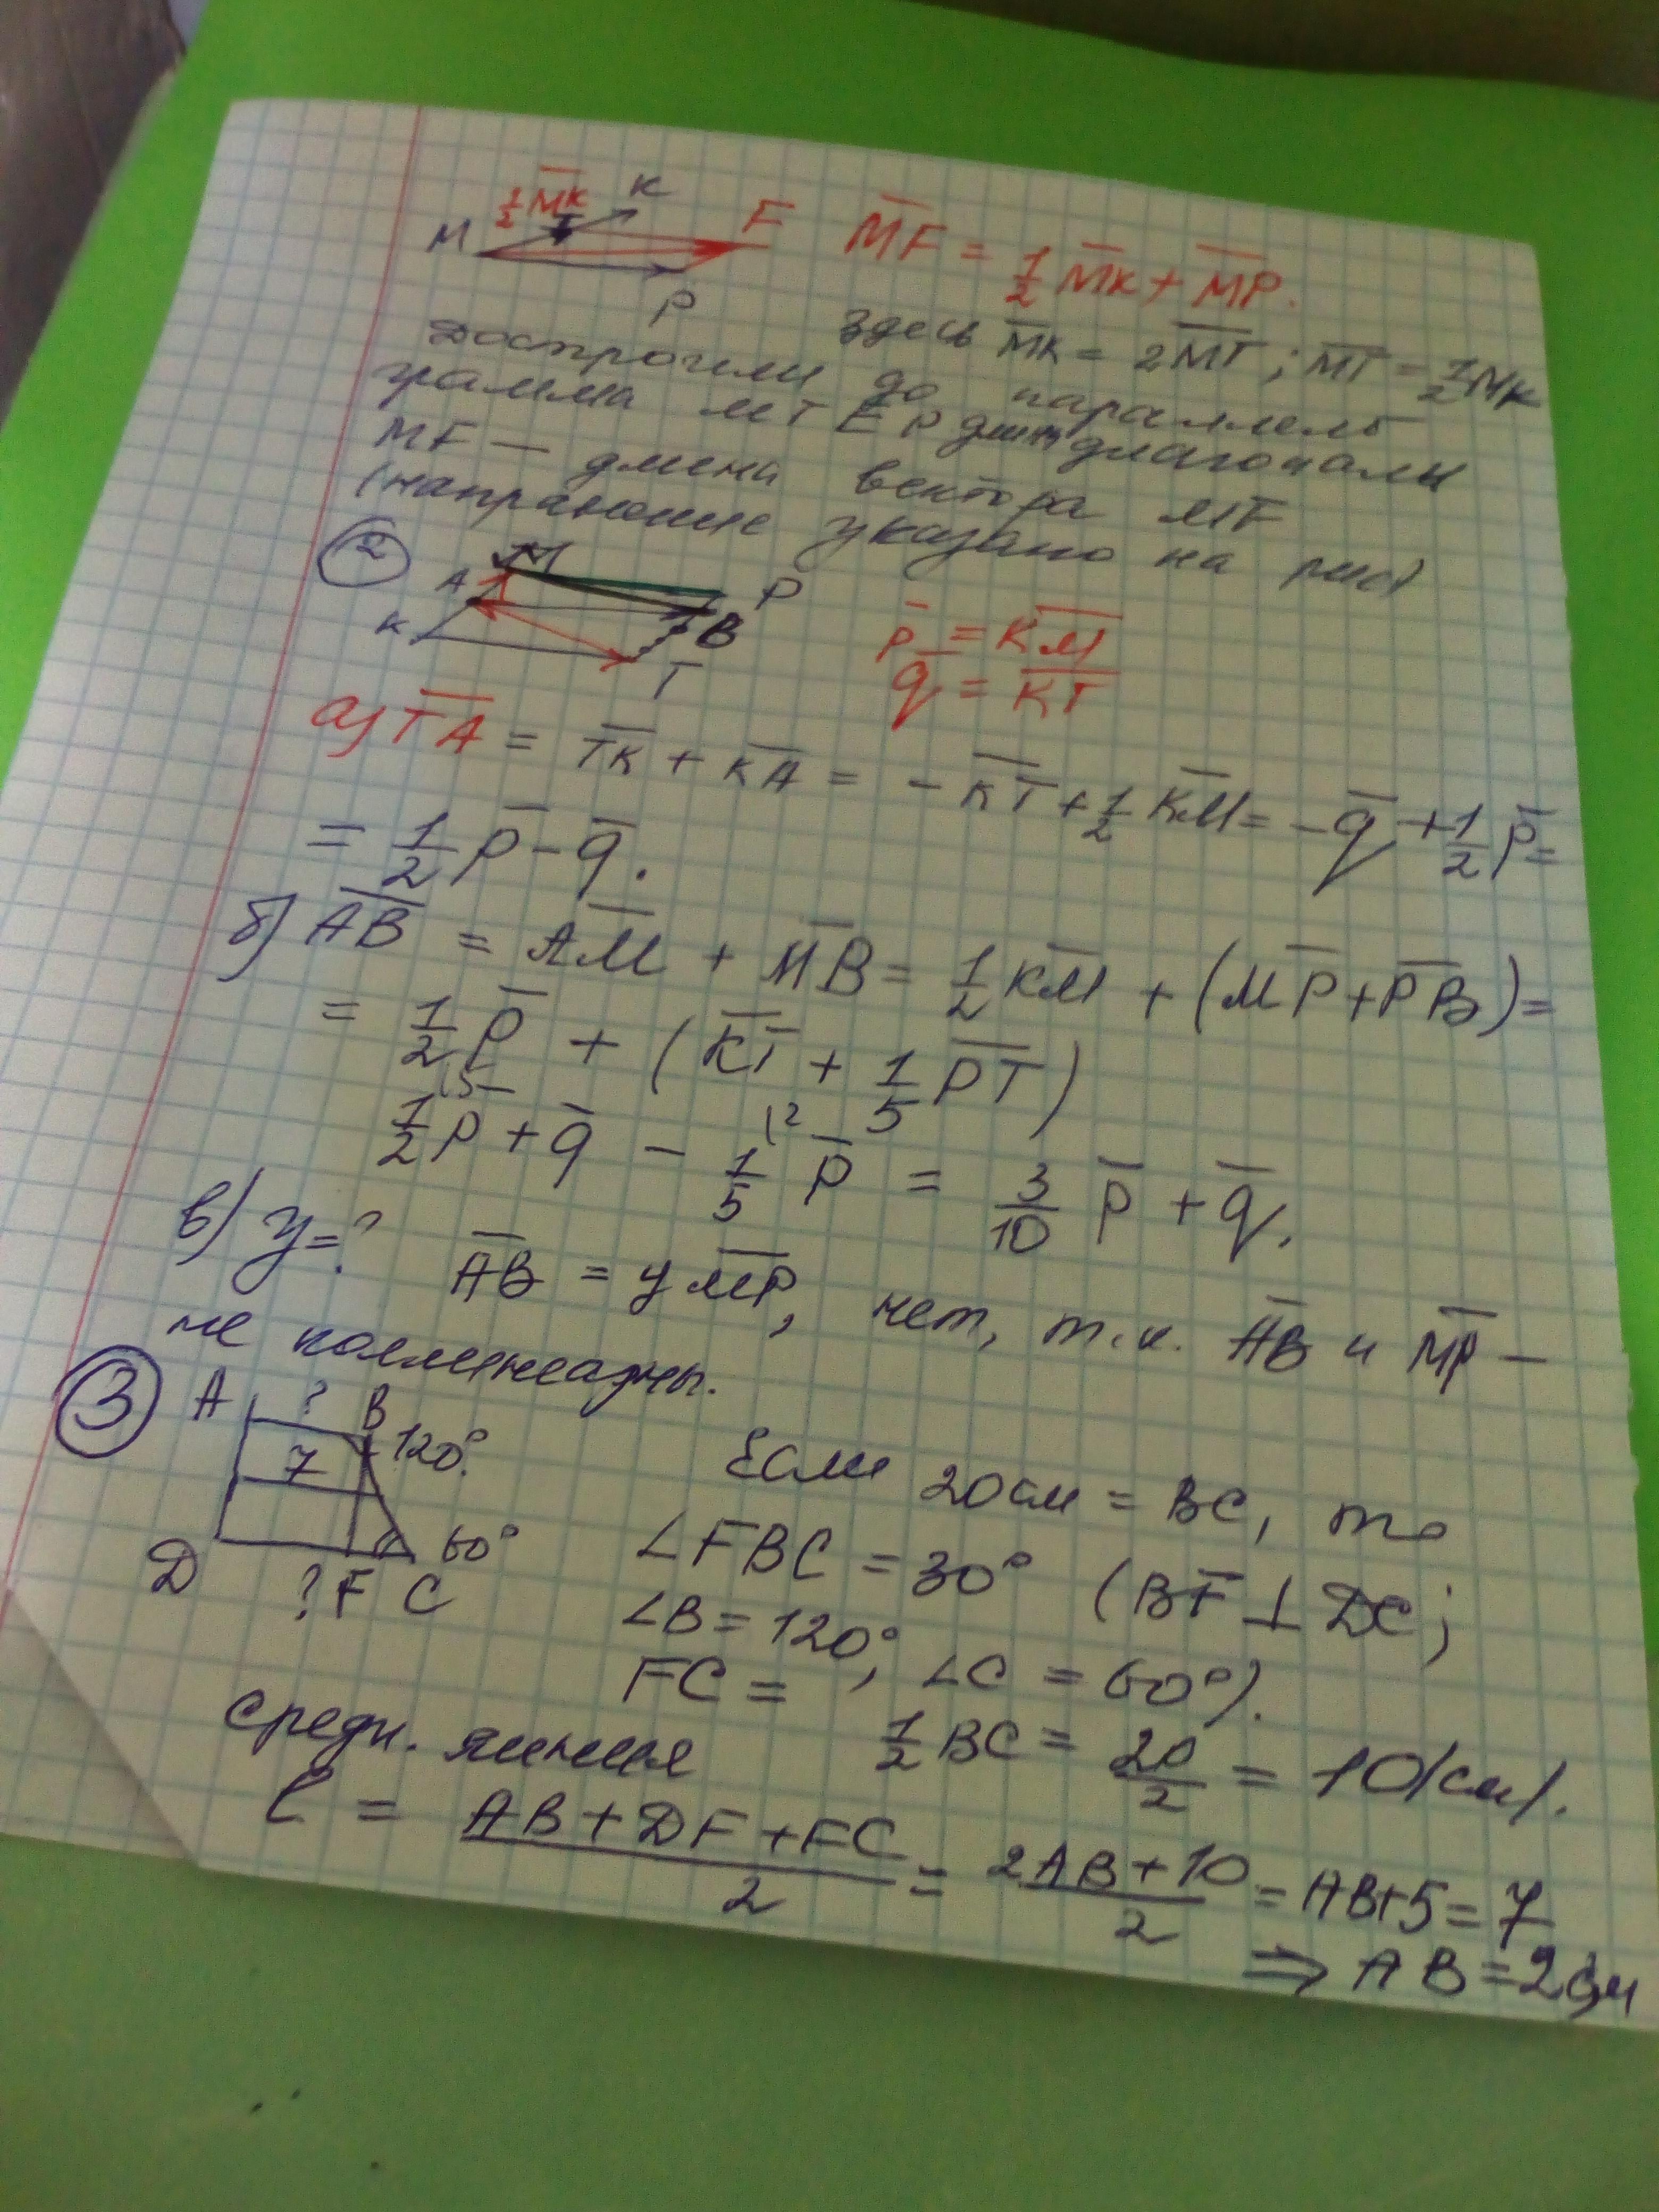 M ½MK K F P
MF = ½ MK + MP.
здесь MK = 2MT; MT = ½MK
Достроили до параллело
грамма MTEP диагонали
MF — длина вектора MF
(направление указано на рис)
2
M A K P B T
p = KM
q = KT
а) TA = TK + KA = -KT + ½ KM = -q + ½ p =
= ½ p - q.
б) AB = AM + MB = ½ KM + (MP + PB) =
= ½ p + (KT + 1/5 PT)
½ p + q - 1/5 p = 3/10 p + q.
в) y = ? AB = y MP, нет, т.к. AB и MP —
не коллинеарны.
3
A ? B 120°
7
D ? F C 60°
Если 20 см = BC, то
∠FBC = 30° (BF ⊥ DC;
∠B = 120°, ∠C = 60°).
FC = ½ BC = 20/2 = 10 (см).
средн. линия
l = (AB + DF + FC)/2 = (2AB + 10)/2 = AB + 5 = 7
⇒ AB = 2 см